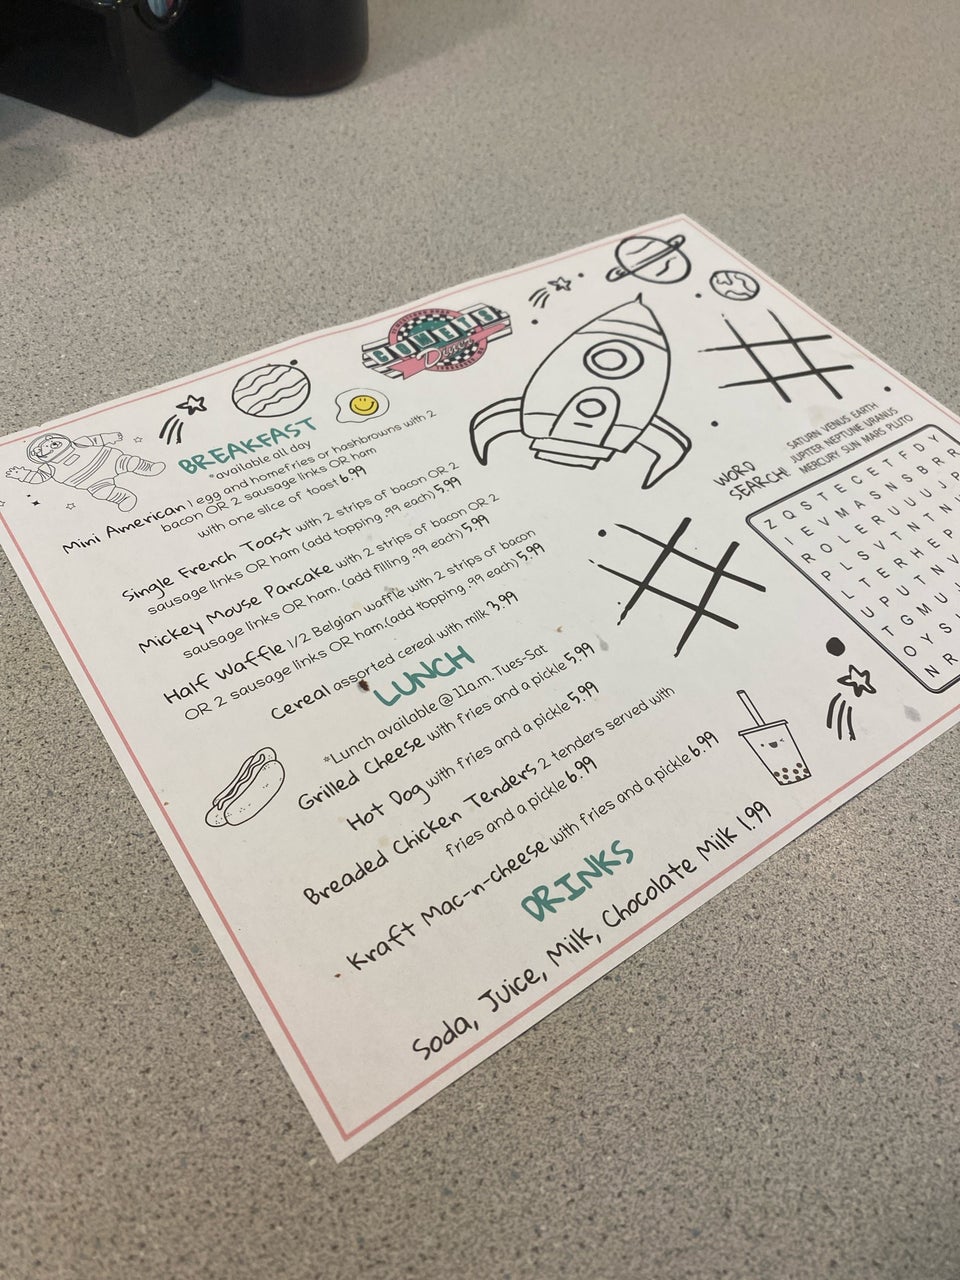 COMETS
Diner
BREAKFAST
*available all day
Mini American 1 egg and homefries or hashbrowns with 2
bacon OR 2 sausage links OR ham
with one slice of toast 6.99
Single French Toast with 2 strips of bacon OR 2
sausage links OR ham (add topping .99 each) 5.99
Mickey Mouse Pancake with 2 strips of bacon OR 2
sausage links OR ham. (add filling .99 each) 5.99
Half Waffle 1/2 Belgian waffle with 2 strips of bacon
OR 2 sausage links OR ham.(add topping .99 each) 5.99
Cereal assorted cereal with milk 3.99
LUNCH
*Lunch available @ 11a.m. Tues-Sat
Grilled Cheese with fries and a pickle 5.99
Hot Dog with fries and a pickle 5.99
Breaded Chicken Tenders 2 tenders served with
fries and a pickle 6.99
Kraft Mac-n-cheese with fries and a pickle 6.99
DRINKS
Soda, Juice, Milk, Chocolate Milk 1.99
WORD
SEARCH!
SATURN VENUS EARTH
JUPITER NEPTUNE URANUS
MERCURY SUN MARS PLUTO
Z Q S T E C E T F D Y
I E V M A S N S B R R
R O L E R U U U J P
P L S V T N T N
L T E R H E P
U P U T N V
T G M U J
O Y S
N R